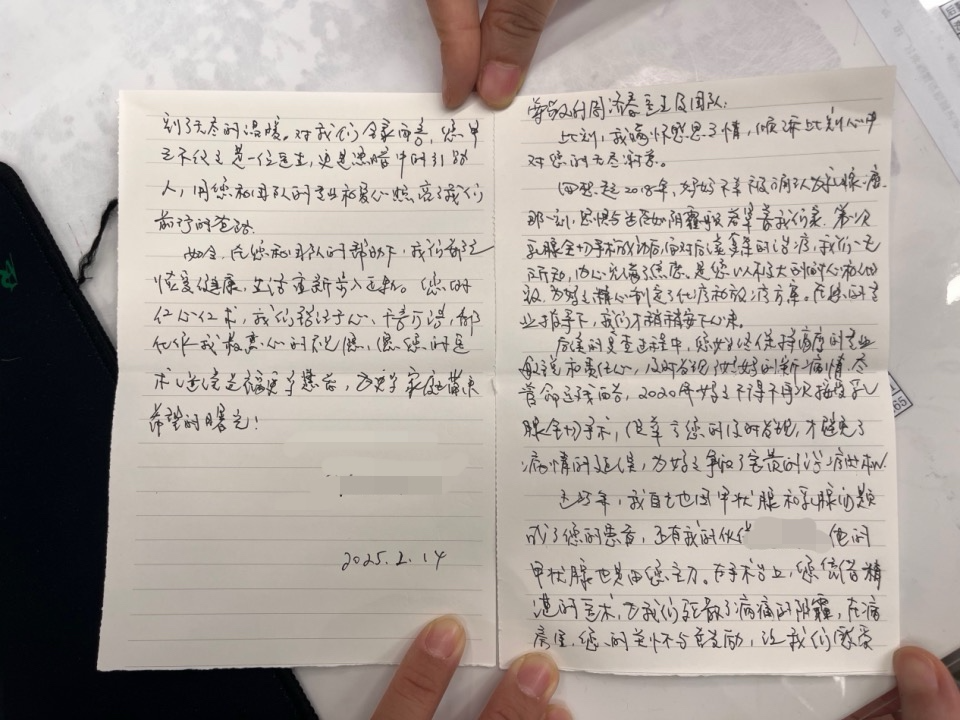 尊敬的周济春主任及团队:
此刻,我满怀感恩之情,倾诉此刻心中
对您的无尽谢意。
回想起2018年,好好不幸被确认为乳腺癌,
那一刻,恐惧与无措如阴霾般笼罩着我们家。第一次
乳腺全切手术成功后,面对后续复杂的治疗,我们一无
所知,内心充满了焦虑。是您以不放大的耐心和细
致,为好好精心制定了化疗和放疗方案。在您的专
业指导下,我们才稍稍安下心来。
后续的复查过程中,您始终保持高度的专业
和责任心,及时发现了好好的新病情。尽
管命运残酷,2020年好好不得不再次接受乳
腺全切手术,但幸亏您的及时发现,才避免了
病情的延误,为好好争取了宝贵的治疗时机。
这些年,我自己也因甲状腺和乳腺问题
成了您的患者,还有我的伙伴 他的
甲状腺也是由您主刀。在手术台上,您凭借精
湛的医术,为我们驱散了病痛的阴霾,在病
房里,您的关怀与鼓励,让我们感受
到了无尽的温暖。对我们全家而言,您早
已不仅仅是一位医生,更是黑暗中的引路
人,用您和团队的专业和爱心照亮了我们
前行的道路。
如今,在您和团队的帮助下,我们都已
恢复健康,生活重新步入正轨。您的
仁心仁术,我们铭记于心,千言万语,都
化作我最衷心的祝愿,愿您的医
术 造福更多患者,为更多家庭带来
希望的曙光!
2025.2.14